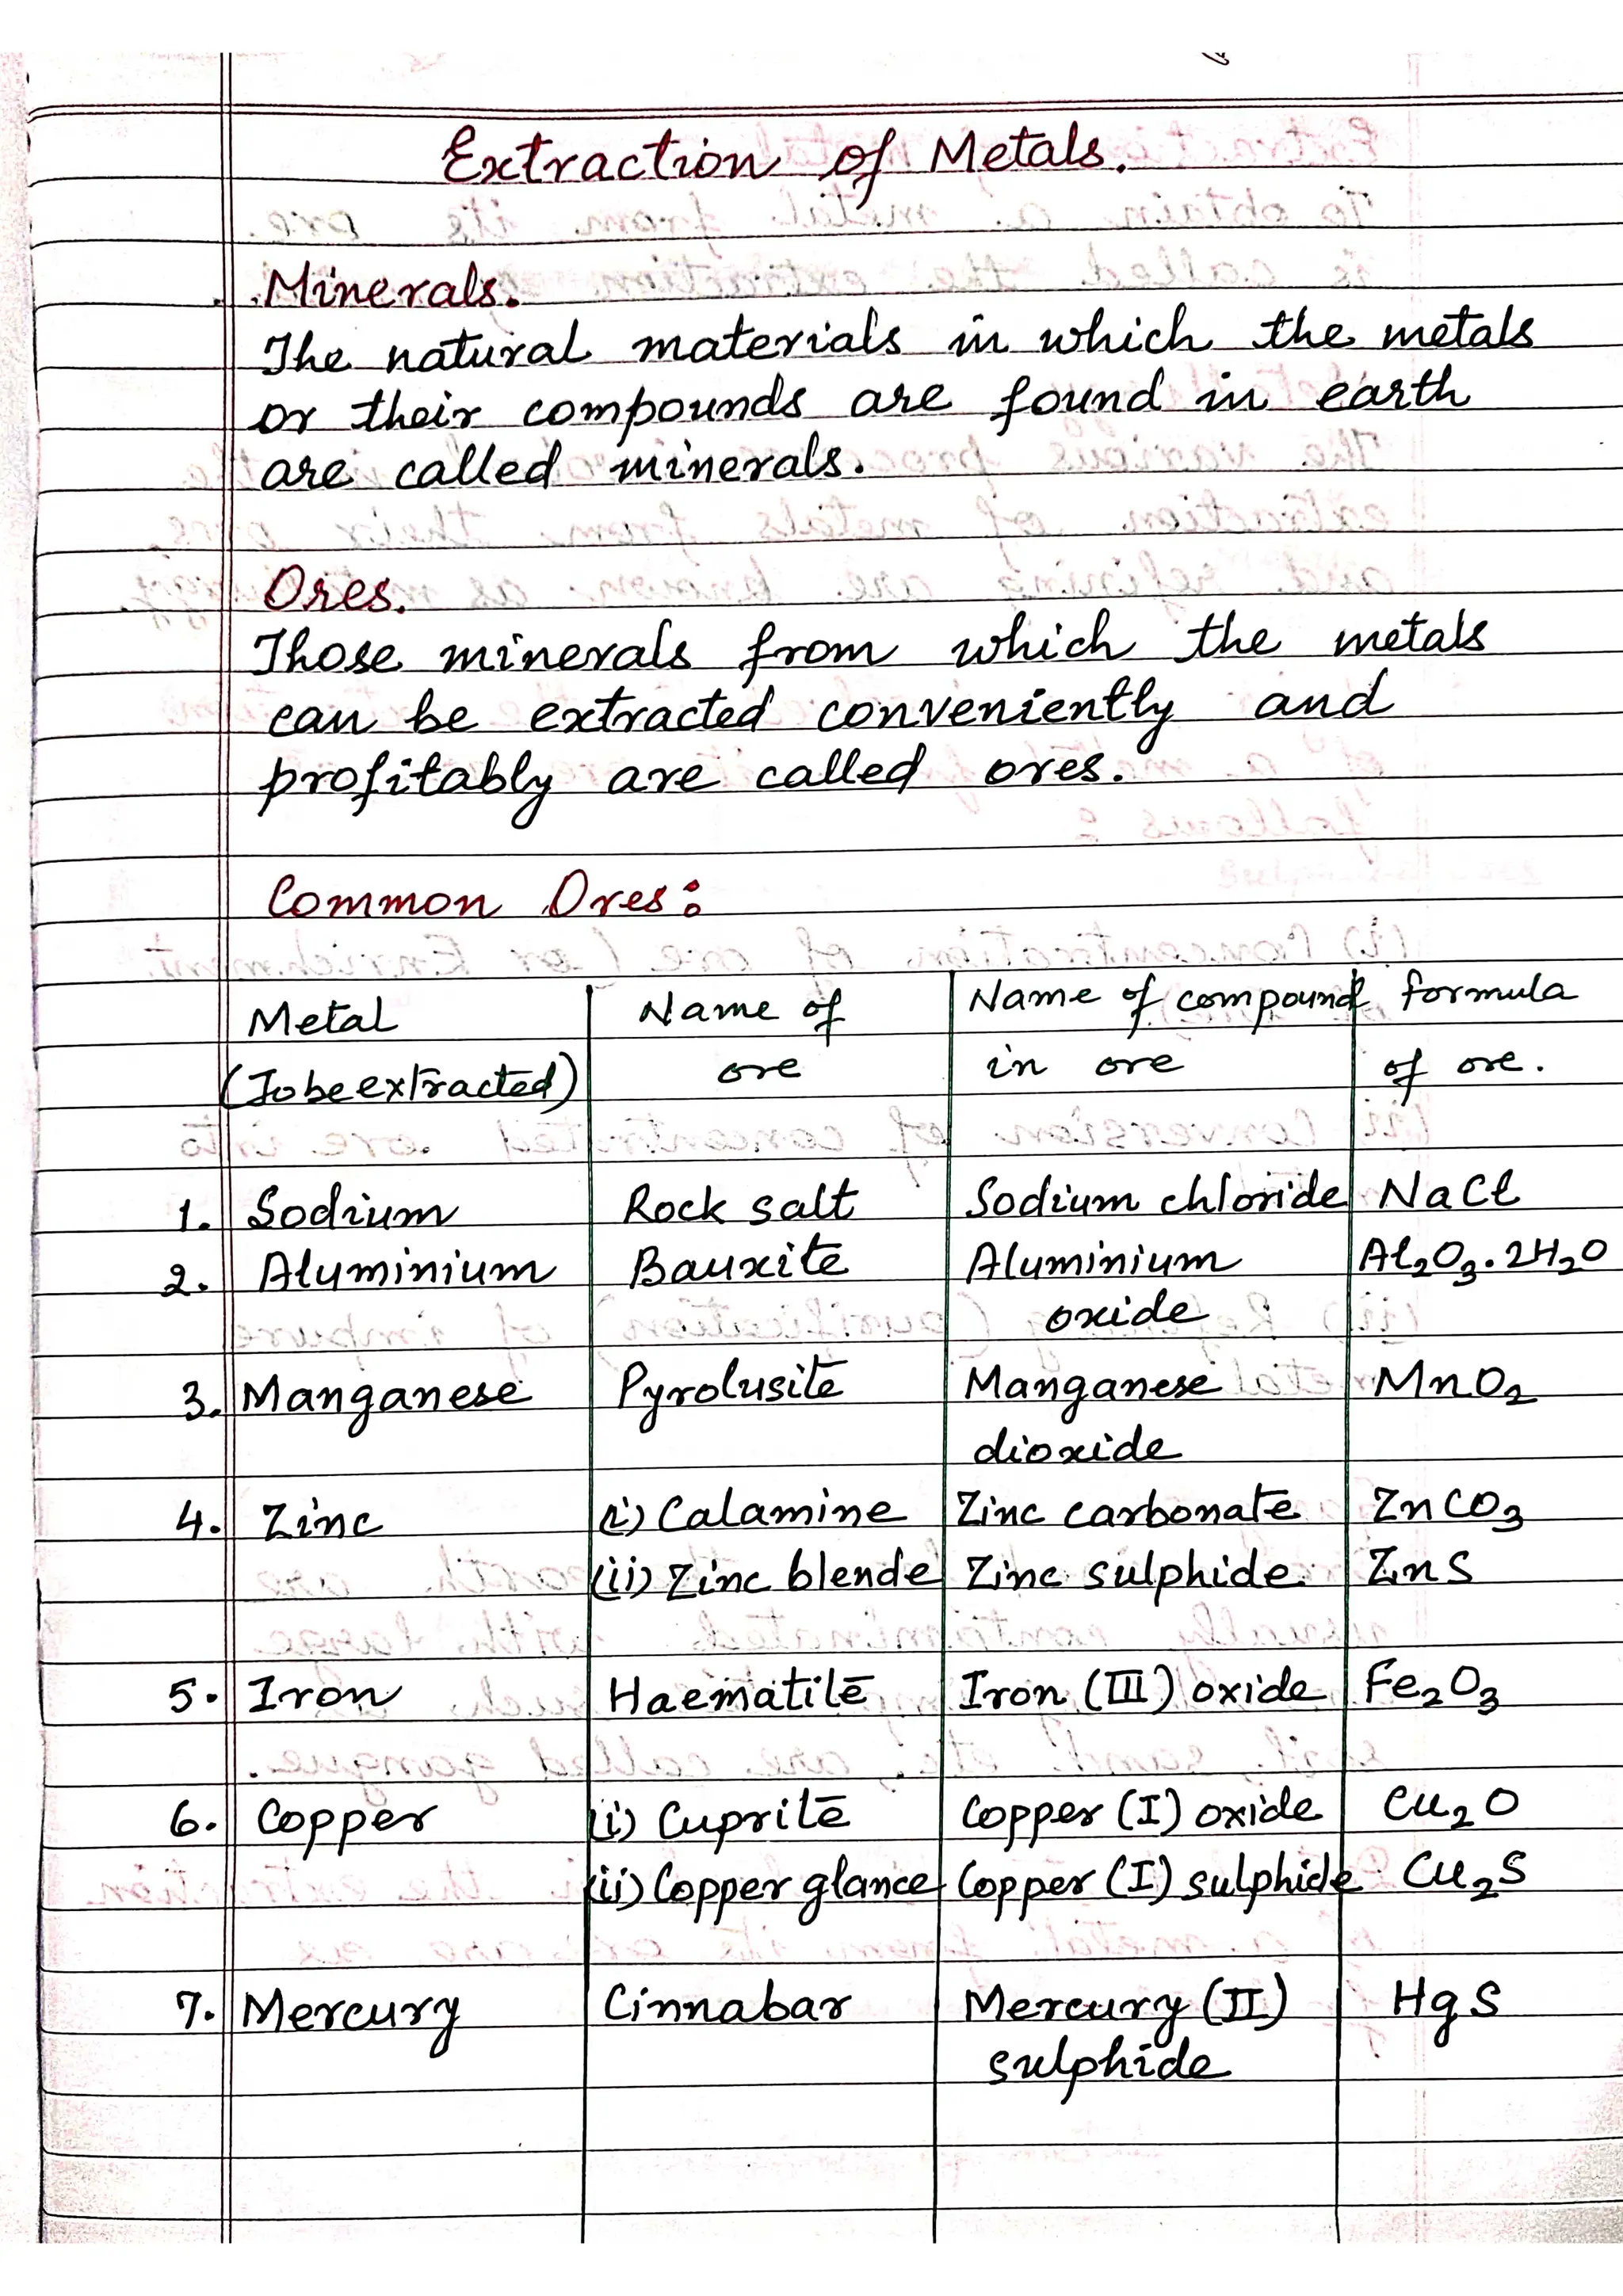 Extraction of Metals.
Minerals.
The natural materials in which the metals
or their compounds are found in earth
are called minerals.
Ores.
Those minerals from which the metals
can be extracted conveniently and
profitably are called ores.
Common Ores:
Metal Name of Name of compound formula
(To be extracted) ore in ore of ore.
1. Sodium Rock salt Sodium chloride NaCl
2. Aluminium Bauxite Aluminium Al₂O₃.2H₂O
oxide
3. Manganese Pyrolusite Manganese MnO₂
dioxide
4. Zinc (i) Calamine Zinc carbonate ZnCO₃
(ii) Zinc blende Zinc sulphide. ZnS
5. Iron Haematite Iron (III) oxide Fe₂O₃
6. Copper (i) Cuprite Copper (I) oxide Cu₂O
(ii) Copper glance Copper (I) sulphide Cu₂S
7. Mercury Cinnabar Mercury (II) HgS
sulphide